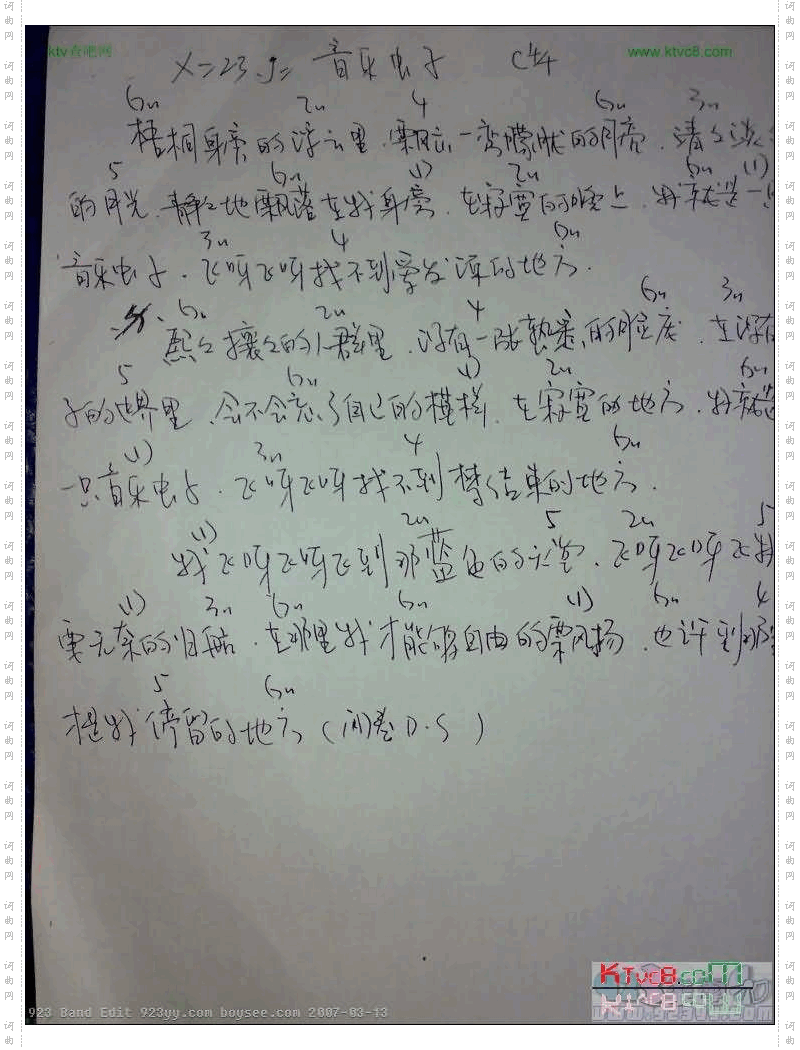 ktv查吧网
www.ktvc8.com
X=23.J= 音乐虫子 C 4/4
6m 2m 4 6m 3m
梧桐身旁的浮云里.飘一弯朦胧的月亮.清
5 6m (1) 2m 6m (1)
的月光.静々地飘落在我身旁.在寂寞的晚上.我就是一只
3m 4 6m
音乐虫子.飞呀飞呀找不到爱发源的地方.
6m 2m 4 6m 3m
熙々攘々的人群里.没有一张熟悉的脸庞.在没有
5 6m (1) 2m 6m
子的世界里.会不会忘了自己的模样.在寂寞的地方.我就是
(1) 3m 4 6m
一只音乐虫子.飞呀飞呀找不到梦结束的地方.
(1) 2m 5 2m 5
我飞呀飞呀飞到那蓝色的天堂.飞呀飞呀飞我
(1) 3m 6m 6m (1) 6m 4
要无奈的归航.在那里我才能够自由的飘扬.也许到那
5 6m
才是我停留的地方(间奏D.S)
KTvc8.com
923 Band Edit 923yy.com boysee.com 2007-03-13
词曲网